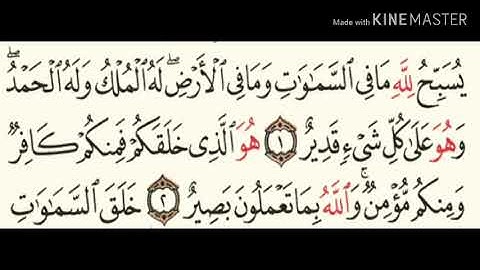 Made with KINEMASTER
يُسَبِّحُ لِلَّهِ مَا فِي السَّمَٰوَٰتِ وَمَا فِي الْأَرْضِ ۖ لَهُ الْمُلْكُ وَلَهُ الْحَمْدُ ۖ
وَهُوَ عَلَىٰ كُلِّ شَيْءٍ قَدِيرٌ ١ هُوَ الَّذِي خَلَقَكُمْ فَمِنكُمْ كَافِرٌ
وَمِنكُم مُّؤْمِنٌ ۚ وَاللَّهُ بِمَا تَعْمَلُونَ بَصِيرٌ ٢ خَلَقَ السَّمَٰوَٰتِ